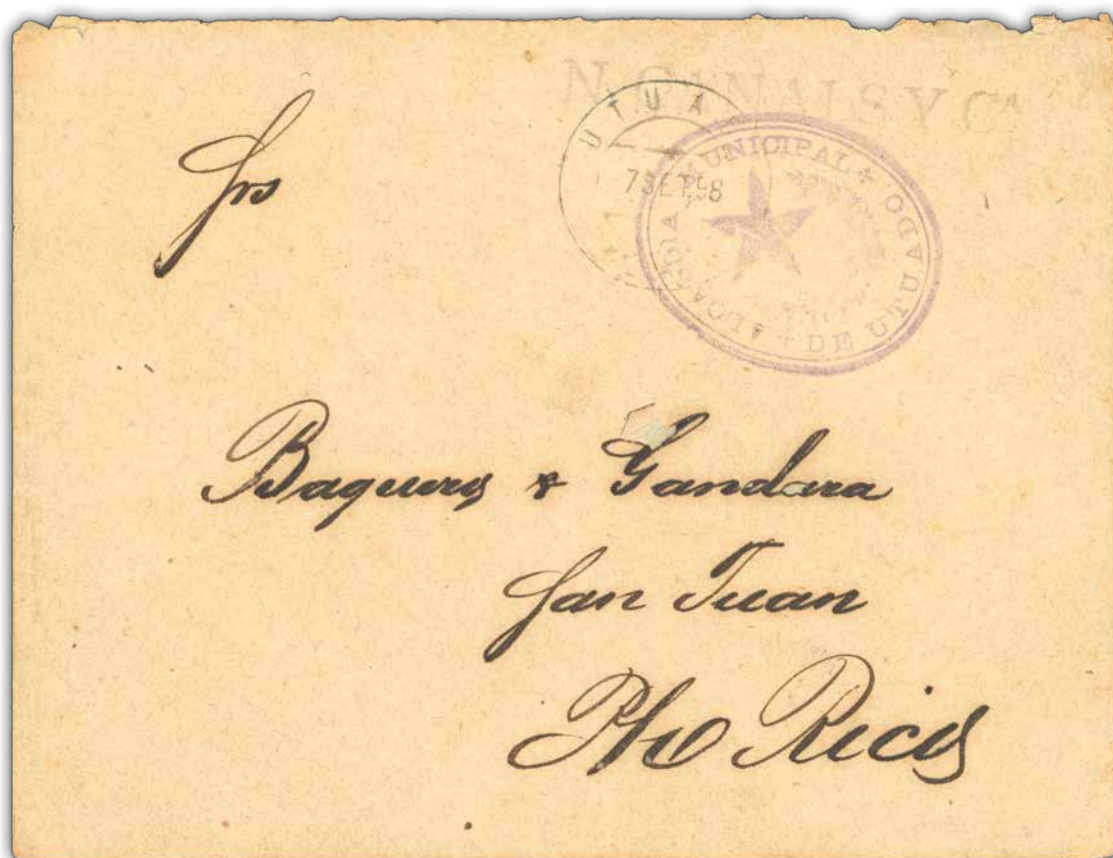 N. CANALS Y Cª
UTUA
7 SET 98
ALCALDIA MUNICIPAL
DE UTUADO.
Srs
Baquero & Gandara
San Juan
Pto Rico